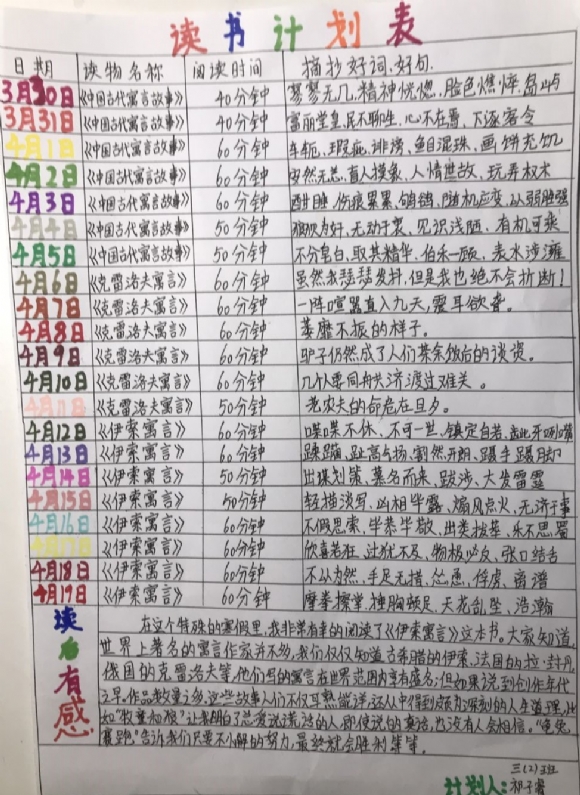 读书计划表
日期 读物名称 阅读时间 摘抄好词、好句.
3月30日 《中国古代寓言故事》 40分钟 寥寥无几、精神恍惚、脸色憔悴、岛屿
3月31日 《中国古代寓言故事》 40分钟 富丽堂皇、民不聊生、心不在焉、下逐客令
4月1日 《中国古代寓言故事》 60分钟 车轭、瑕疵、诽谤、鱼目混珠、画饼充饥
4月2日 《中国古代寓言故事》 60分钟 安然无恙、盲人摸象、人情世故、玩弄权术
4月3日 《中国古代寓言故事》 60分钟 酣睡、伤痕累累、销销、随机应变、以弱胜强
4月4日 《中国古代寓言故事》 50分钟 无动于衷、见识浅陋、有机可乘
4月5日 《中国古代寓言故事》 50分钟 不分皂白、取其精华、伯乐一顾、表水涉澭
4月6日 《克雷洛夫寓言》 60分钟 虽然我瑟瑟发抖,但是我也绝不会折断!
4月7日 《克雷洛夫寓言》 60分钟 一阵喧嚣直入九天,震耳欲聋。
4月8日 《克雷洛夫寓言》 60分钟 萎靡不振的样子。
4月9日 《克雷洛夫寓言》 60分钟 驴子仍然成了人们茶余饭后的谈资。
4月10日 《克雷洛夫寓言》 60分钟 几个人要同舟共济渡过难关。
4月11日 《克雷洛夫寓言》 50分钟 老农夫的命危在旦夕。
4月12日 《伊索寓言》 60分钟 喋喋不休、不可一世、镇定自若、龇牙咧嘴
4月13日 《伊索寓言》 60分钟 趾高气扬、豁然开朗、蹑手蹑脚
4月14日 《伊索寓言》 50分钟 出谋划策、慕名而来、跋涉、大发雷霆
4月15日 《伊索寓言》 50分钟 轻描淡写、凶相毕露、煽风点火、无济于事
4月16日 《伊索寓言》 60分钟 不假思索、毕恭毕敬、出类拔萃、乐不思蜀
4月17日 《伊索寓言》 60分钟 欣喜若狂、过犹不及、物极必反、张口结舌
4月18日 《伊索寓言》 60分钟 不以为然、手足无措、怂恿、俘虏、离谱
4月19日 《伊索寓言》 60分钟 摩拳擦掌、捶胸顿足、天花乱坠、浩瀚
读后有感
在这个特殊的寒假里,我非常有幸的阅读了《伊索寓言》这本书。大家知道,
世界上著名的寓言作家并不多,我们仅仅知道古希腊的伊索、法国的拉·封丹、
俄国的克雷洛夫等,他们写的寓言在世界范围内享有盛名;但如果说到创作年代
之早,作品数量之多,这些故事人们不仅耳熟能详,还从中得到颇为深刻的人生道理,比
如"牧童和狼"让我明白了总爱说谎话的人即使说的真话,也没有人会相信。"龟兔
赛跑"告诉我们只要不小懈的努力,最终就会胜利等等。
三(2)班
计划人:祁子睿